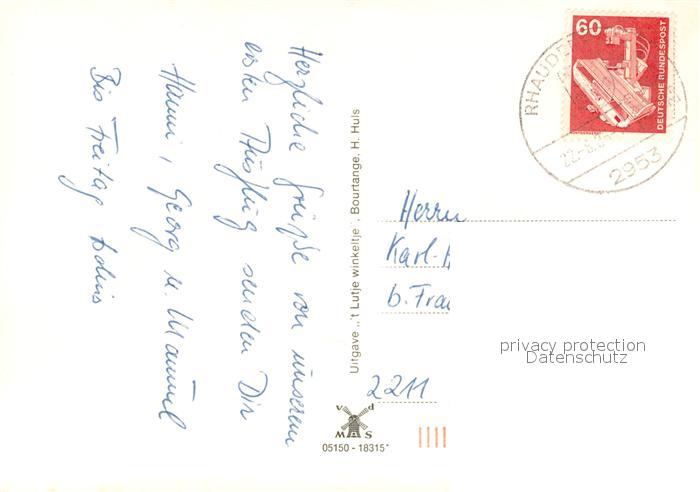 Herzliche Grüße von unserem
ersten Ausflug senden Dir
Hanni, Georg u. Manuel
Bis Freitag
Uitgave „'t Lutje winkeltje", Bourtange. H. Huls
60
DEUTSCHE BUNDESPOST
RHAUDE
22.-8.
2953
Herrn
Karl-H
b. Frau
2211
privacy protection
Datenschutz
M A S
P A
05150 - 18315*